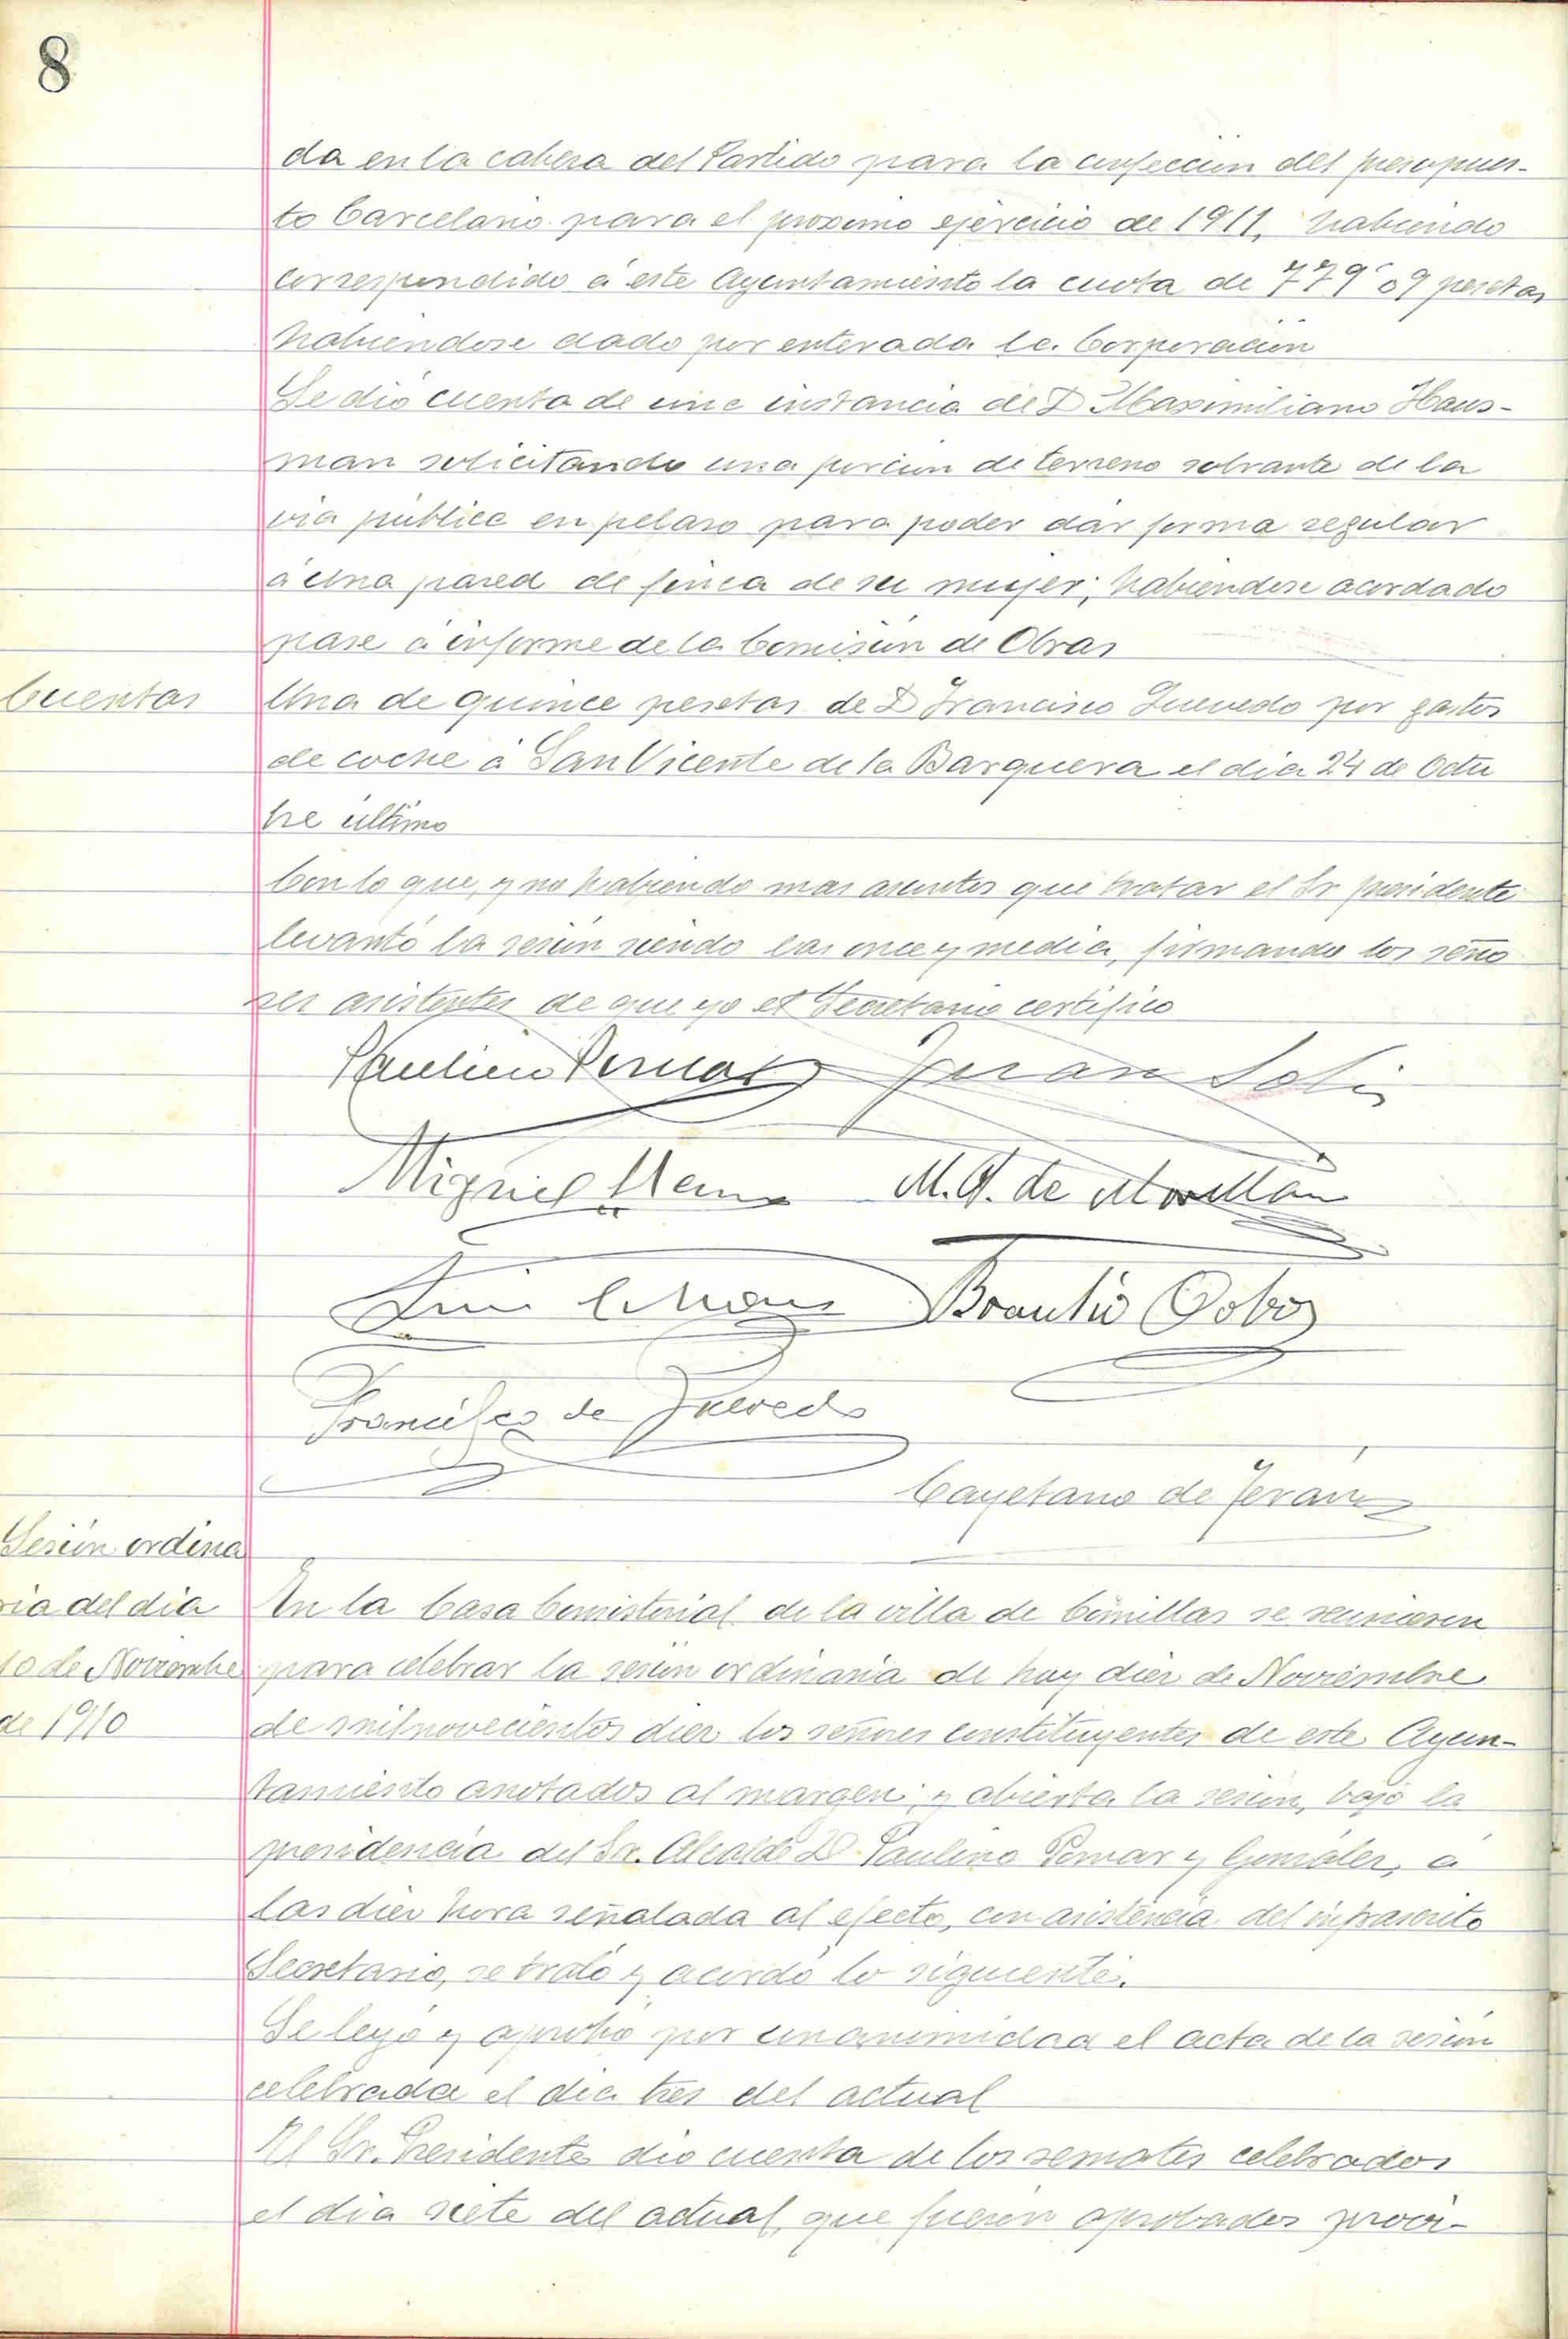 8
da en la cabeza del Partido para la confección del presupues-
to Carcelario para el proximo ejercicio de 1911, habiendo
correspondido á este Ayuntamiento la cuota de 779'09 pesetas
habiendose dado por enterada la Corporación
Se dió cuenta de una instancia de D Maximiliano Haus-
man solicitando una porcion de terreno sobrante de la
via pública en pelaro para poder dar forma regular
á una pared de finca de su mujer; habiendose acordado
pase á informe de la Comisión de Obras
Cuentas
Una de quince pesetas de D Francisco Quevedo por gastos
de coche á San Vicente de la Barquera el dia 24 de Octu
bre último
Con lo que, y no habiendo mas asuntos que tratar el Sr presidente
levantó la sesión siendo las once y media, firmando los seño
res asistentes de que yo el Secretario certifico
Paulino Pomar Juan Solis
Miguel M. A. de Movellan
Braulio Cobos
Francisco de Quevedo
Cayetano de Terán
Sesión ordina
ria del dia
10 de Noviembre
de 1910
En la Casa Consistorial de la villa de Comillas se reunieron
para celebrar la sesión ordinaria de hoy diez de Noviembre
de mil novecientos diez los señores constituyentes de este Ayun-
tamiento anotados al margen; y abierta la sesión, bajo la
presidencia del Sr. Alcalde D. Paulino Pomar y González, á
las diez hora señalada al efecto, con asistencia del infrascrito
Secretario, se trató y acordó lo siguiente.
Se leyó y aprobó por unanimidad el acta de la sesión
celebrada el dia tres del actual
El Sr. Presidente dio cuenta de los remates celebrados
el dia siete del actual, que fueron aprobados provi-